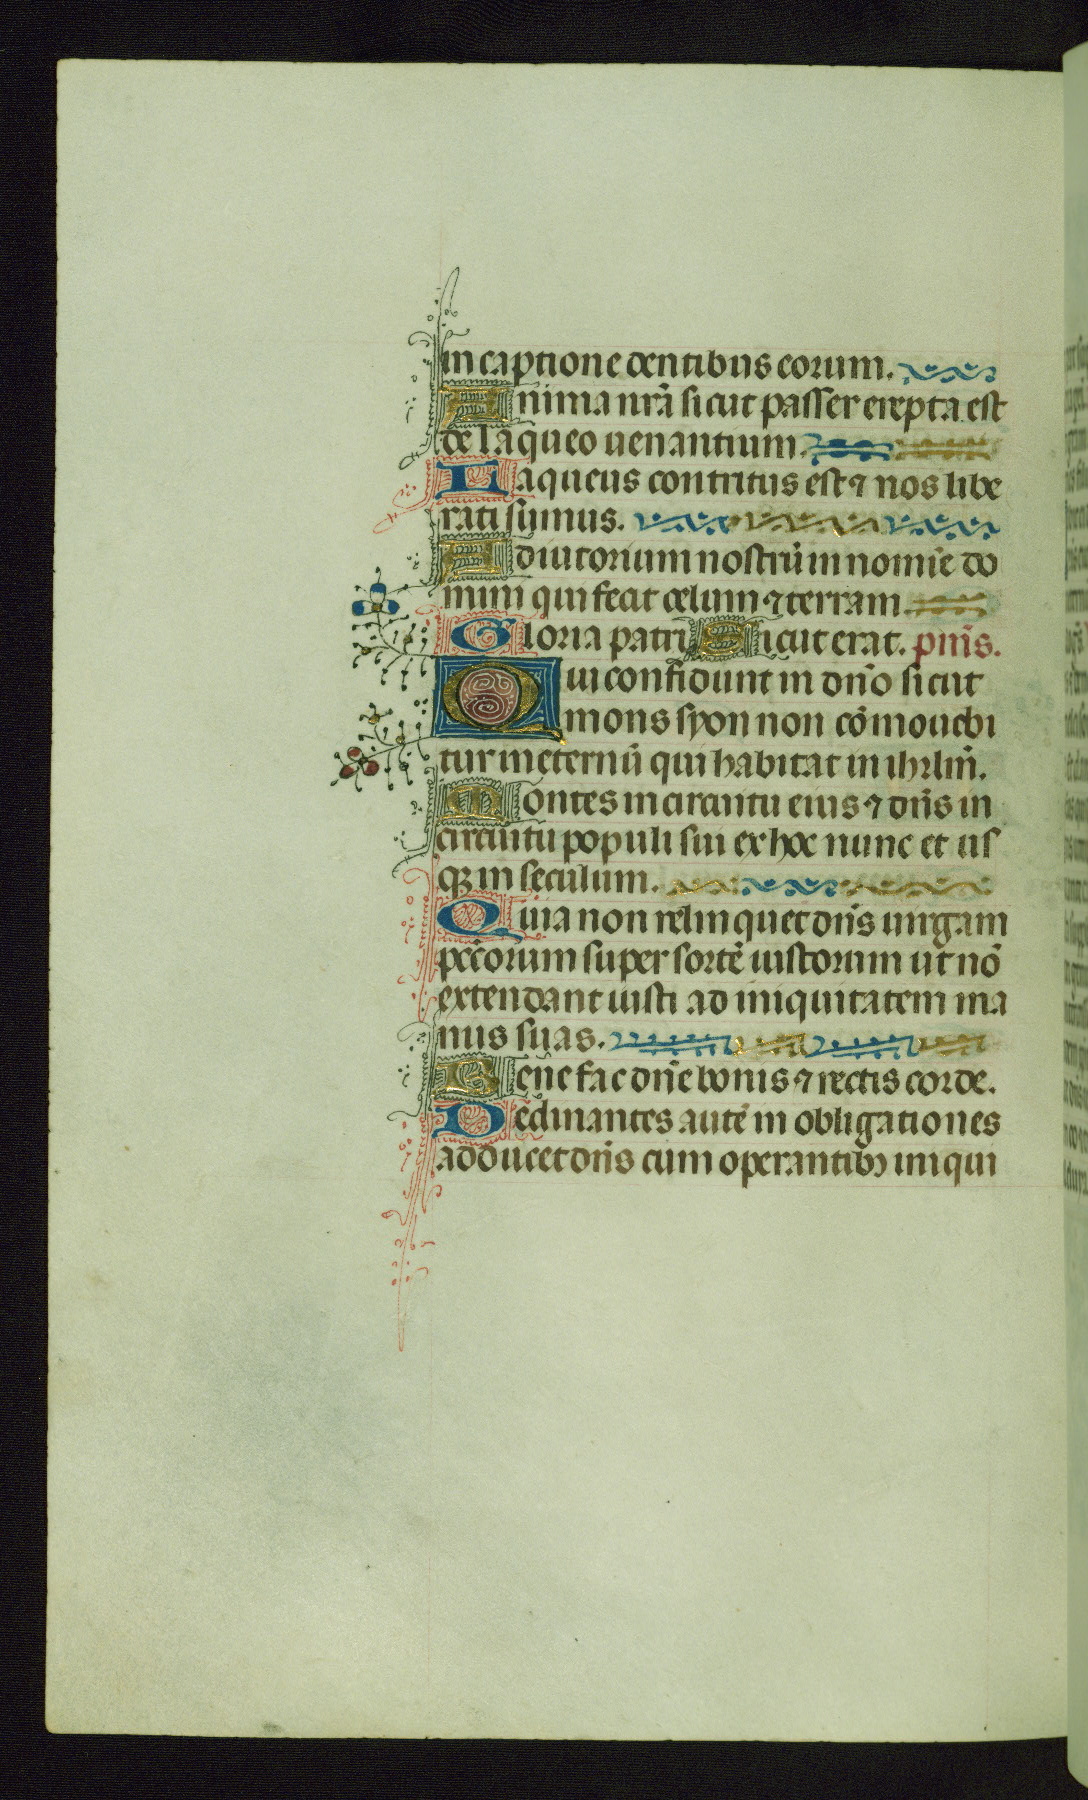 in captione dentibus eorum.
Anima nr̃a sicut passer erepta est
de laqueo uenantium.
Laqueus contritus est ⁊ nos libe
rati sumus.
Adiutorium nostrũ in nomĩe do
mini qui fecit celum ⁊ terram.
Gloria patri Sicut erat. pm̃s.
Qui confidunt in dño sicut
mons syon non cõmouebi
tur in eternũ qui habitat in ihrlm̃.
Montes in circuitu eius ⁊ dñs in
circuitu populi sui ex hoc nunc et us
qꝫ in seculum.
Quia non relinquet dñs uirgam
pcc̃orum super sortẽ iustorum ut nõ
extendant iusti ad iniquitatem ma
nus suas.
Beñe fac dñe bonis ⁊ rectis corde.
Declinantes autẽ in obligationes
adducet dñs cum operantibꝫ iniqui